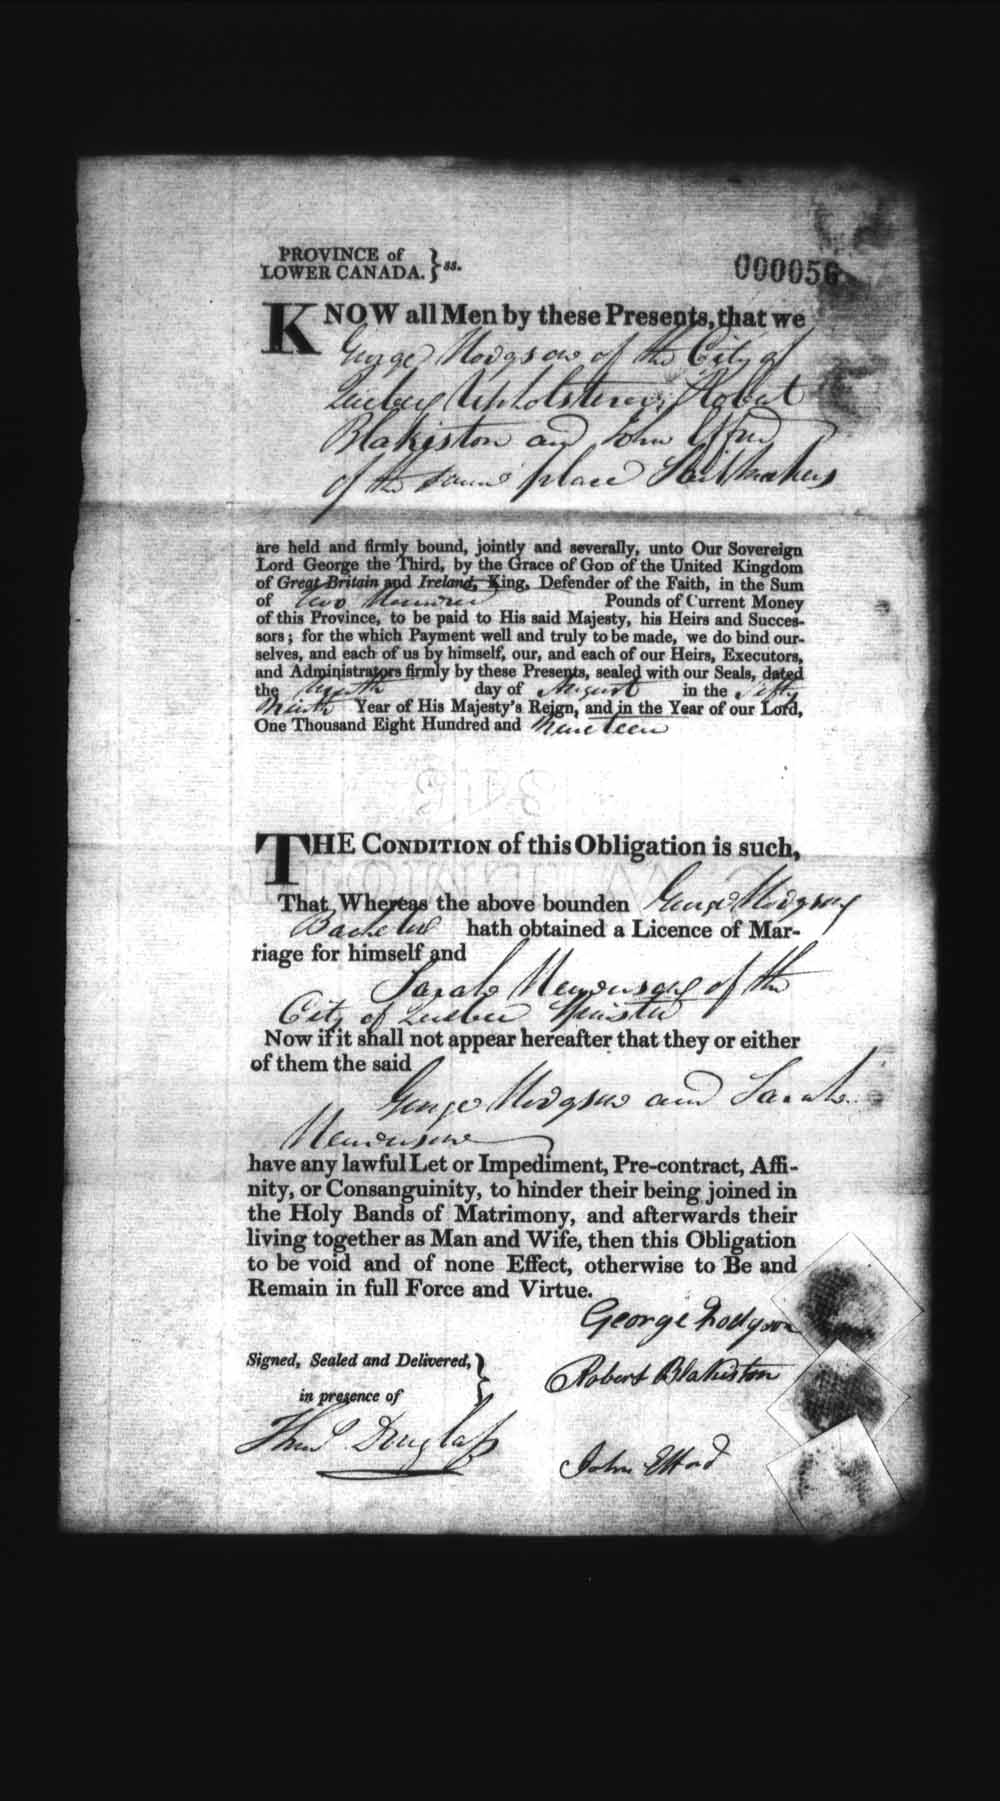 PROVINCE of
LOWER CANADA. } ss.
000056
KNOW all Men by these Presents, that we
George Hodgson of the City of
Quebec Upholsterer, Robert
Blakiston and John
of the same place Sail Makers
are held and firmly bound, jointly and severally, unto Our Sovereign
Lord George the Third, by the Grace of GOD of the United Kingdom
of Great Britain and Ireland, King, Defender of the Faith, in the Sum
of Two Hundred Pounds of Current Money
of this Province, to be paid to His said Majesty, his Heirs and Succes-
sors; for the which Payment well and truly to be made, we do bind our-
selves, and each of us by himself, our, and each of our Heirs, Executors,
and Administrators firmly by these Presents, sealed with our Seals, dated
the day of August in the Fifty
Ninth Year of His Majesty's Reign, and in the Year of our Lord,
One Thousand Eight Hundred and Nineteen
THE CONDITION of this Obligation is such,
That Whereas the above bounden George Hodgson
Bachelor hath obtained a Licence of Mar-
riage for himself and
Sarah of the
City of Quebec Spinster
Now if it shall not appear hereafter that they or either
of them the said
George Hodgson and Sarah
have any lawful Let or Impediment, Pre-contract, Affi-
nity, or Consanguinity, to hinder their being joined in
the Holy Bands of Matrimony, and afterwards their
living together as Man and Wife, then this Obligation
to be void and of none Effect, otherwise to Be and
Remain in full Force and Virtue.
George Hodgson
Signed, Sealed and Delivered, }
in presence of
Robert Blakiston
Thos. Douglass
John